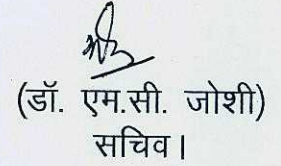 (डॉ. एम.सी. जोशी)
सचिव।